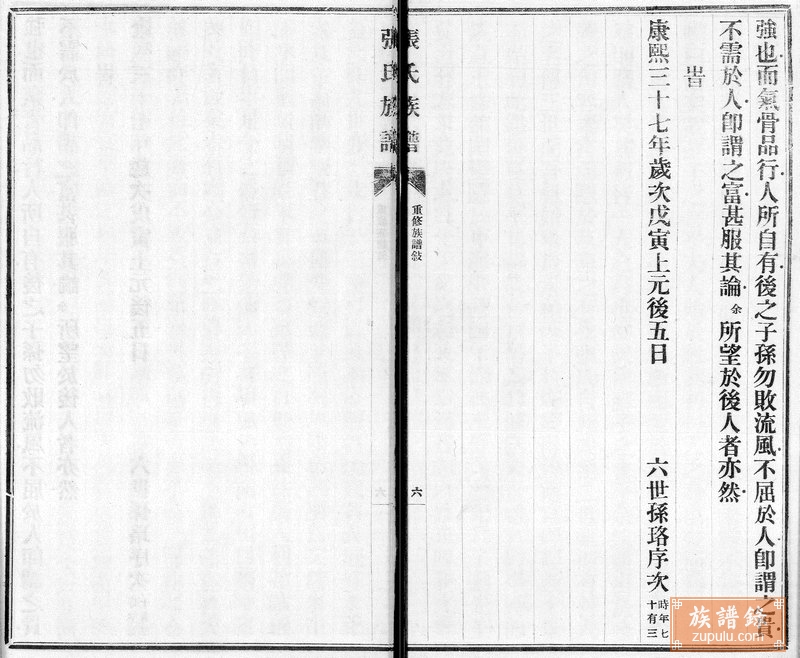 強也而氣骨品行人所自有後之子孫勿敗流風不屈於人卽謂之貴
不需於人卽謂之富甚服其論余所望於後人者亦然
旹
康熙三十七年歲次戊寅上元後五日　六世孫珞序次時年七十有三
張氏族譜
重修族譜敍
六
族譜錄
zupulu.com